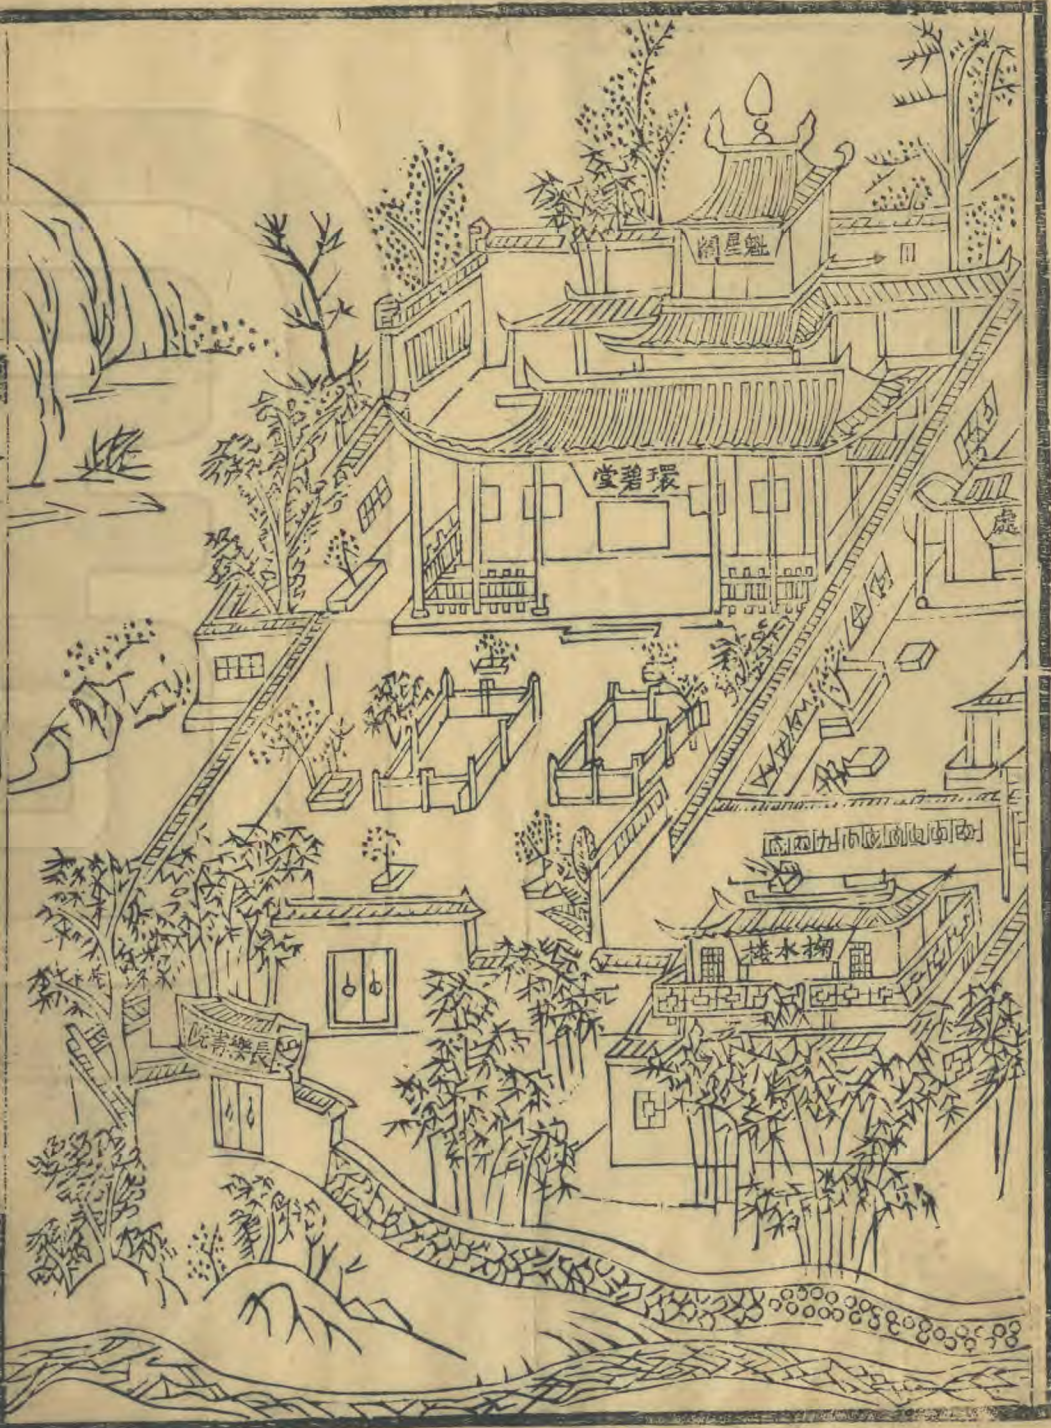 魁星閣
環碧堂
處
掬水楼
長樂書院